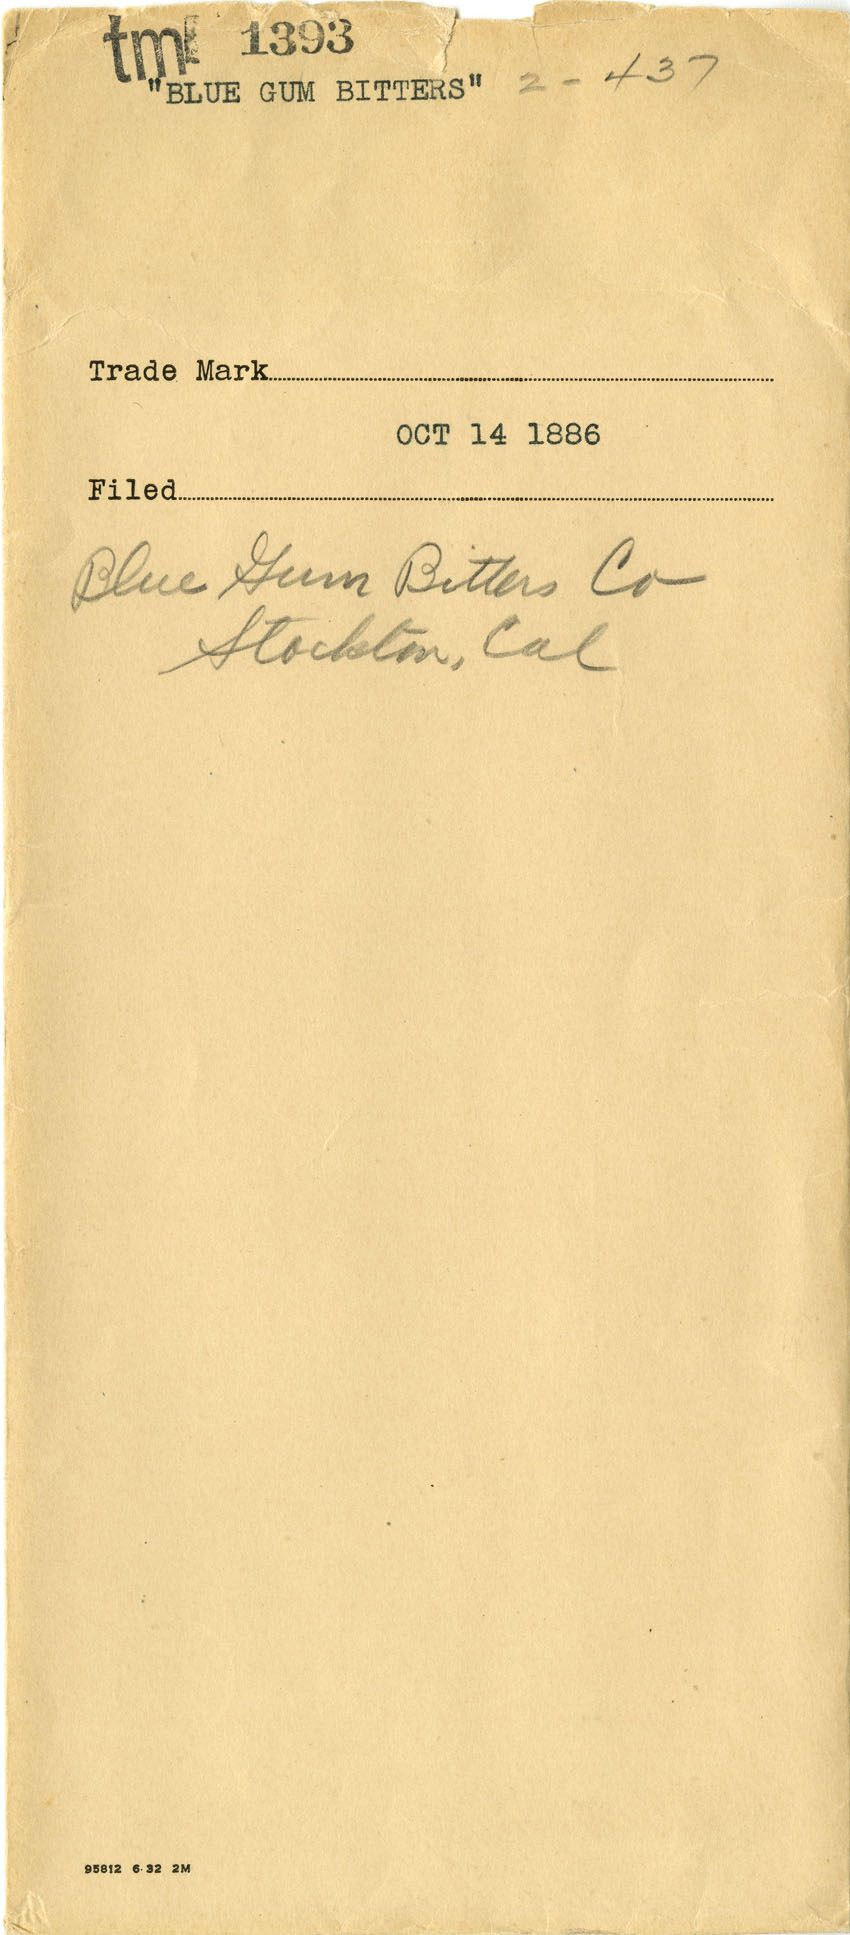 tm 1393
"BLUE GUM BITTERS" 2-437
Trade Mark
OCT 14 1886
Filed
Blue Gum Bitters Co
Stockton, Cal
95812 6-32 2M